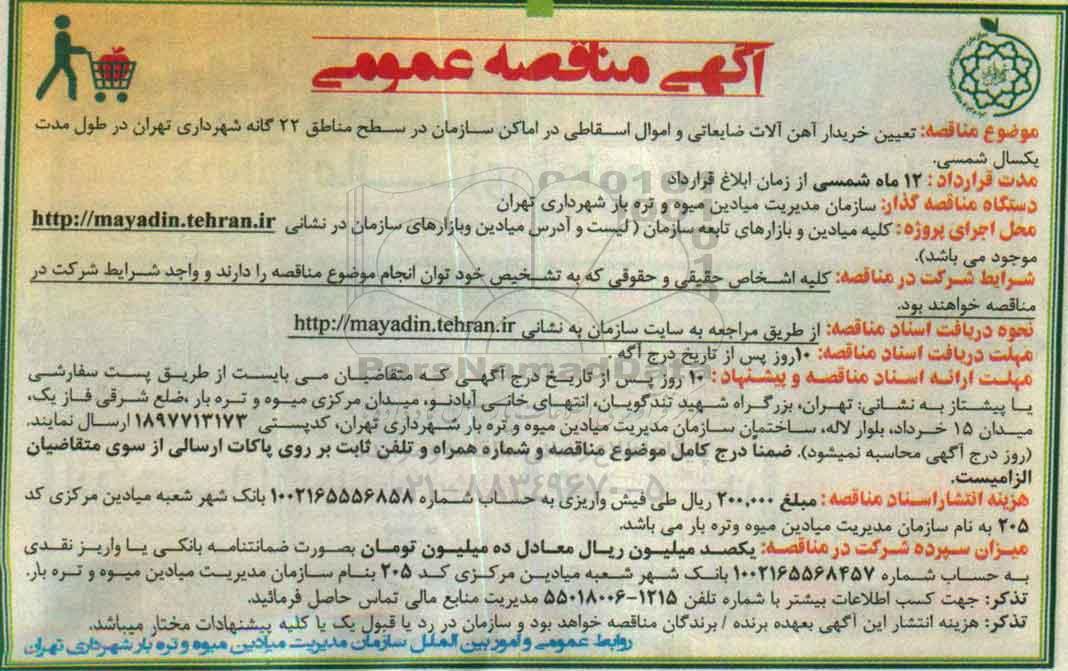 آگهی مناقصه عمومی
موضوع مناقصه: تعیین خریدار آهن آلات ضایعاتی و اموال اسقاطی در اماکن سازمان در سطح مناطق ۲۲ گانه شهرداری تهران در طول مدت
یکسال شمسی.
مدت قرارداد: ۱۲ ماه شمسی از زمان ابلاغ قرارداد
دستگاه مناقصه گذار: سازمان مدیریت میادین میوه و تره بار شهرداری تهران
محل اجرای پروژه: کلیه میادین و بازارهای تابعه سازمان ( لیست و آدرس میادین وبازارهای سازمان در نشانی http://mayadin.tehran.ir
موجود می باشد).
شرایط شرکت در مناقصه: کلیه اشخاص حقیقی و حقوقی که به تشخیص خود توان انجام موضوع مناقصه را دارند و واجد شرایط شرکت در
مناقصه خواهند بود.
نحوه دریافت اسناد مناقصه: از طریق مراجعه به سایت سازمان به نشانی http://mayadin.tehran.ir
مهلت دریافت اسناد مناقصه: ۱۰روز پس از تاریخ درج آگه.
ParsNamadData
مهلت ارائه اسناد مناقصه و پیشنهاد: ۱۰ روز پس از تاریخ درج آگهی که متقاضیان می بایست از طریق پست سفارشی
یا پیشتاز به نشانی: تهران، بزرگراه شهید تندگویان، انتهای خانی آبادنو، میدان مرکزی میوه و تره بار ،ضلع شرقی فاز یک،
میدان ۱۵ خرداد، بلوار لاله، ساختمان سازمان مدیریت میادین میوه و تره بار شهرداری تهران، کدپستی ۱۸۹۷۷۱۳۱۷۳ ارسال نمایند.
(روز درج آگهی محاسبه نمیشود). ضمناً درج کامل موضوع مناقصه و شماره همراه و تلفن ثابت بر روی پاکات ارسالی از سوی متقاضیان
الزامیست.
۰۲۱-۸۸۳۴۹۶۷۰-۵
هزینه انتشاراسناد مناقصه: مبلغ ۲۰۰,۰۰۰ ریال طی فیش واریزی به حساب شماره ۱۰۰۲۱۶۵۵۵۶۸۵۸ بانک شهر شعبه میادین مرکزی کد
۲۰۵ به نام سازمان مدیریت میادین میوه وتره بار می باشد.
میزان سپرده شرکت در مناقصه: یکصد میلیون ریال معادل ده میلیون تومان بصورت ضمانتنامه بانکی یا واریز نقدی
به حساب شماره ۱۰۰۲۱۶۵۵۶۸۴۵۷ بانک شهر شعبه میادین مرکزی کد ۲۰۵ بنام سازمان مدیریت میادین میوه و تره بار.
تذکر: جهت کسب اطلاعات بیشتر با شماره تلفن ۱۲۱۵-۵۵۰۱۸۰۰۶ مدیریت منابع مالی تماس حاصل فرمائید.
تذکر: هزینه انتشار این آگهی بعهده برنده / برندگان مناقصه خواهد بود و سازمان در رد یا قبول یک یا کلیه پیشنهادات مختار میباشد.
روابط عمومی و امور بین الملل سازمان مدیریت میادین میوه و تره بار شهرداری تهران